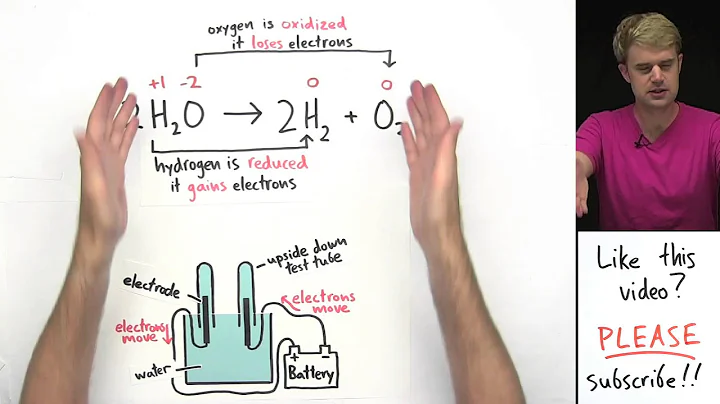 oxygen is oxidized
it loses electrons
+1 -2 0 0
2H₂O → 2H₂ + O₂
hydrogen is reduced
it gains electrons
upside down
test tube
electrode
electrons
move
electrons
move
water
+ -
Battery
Like this
video?
PLEASE
subscribe!!